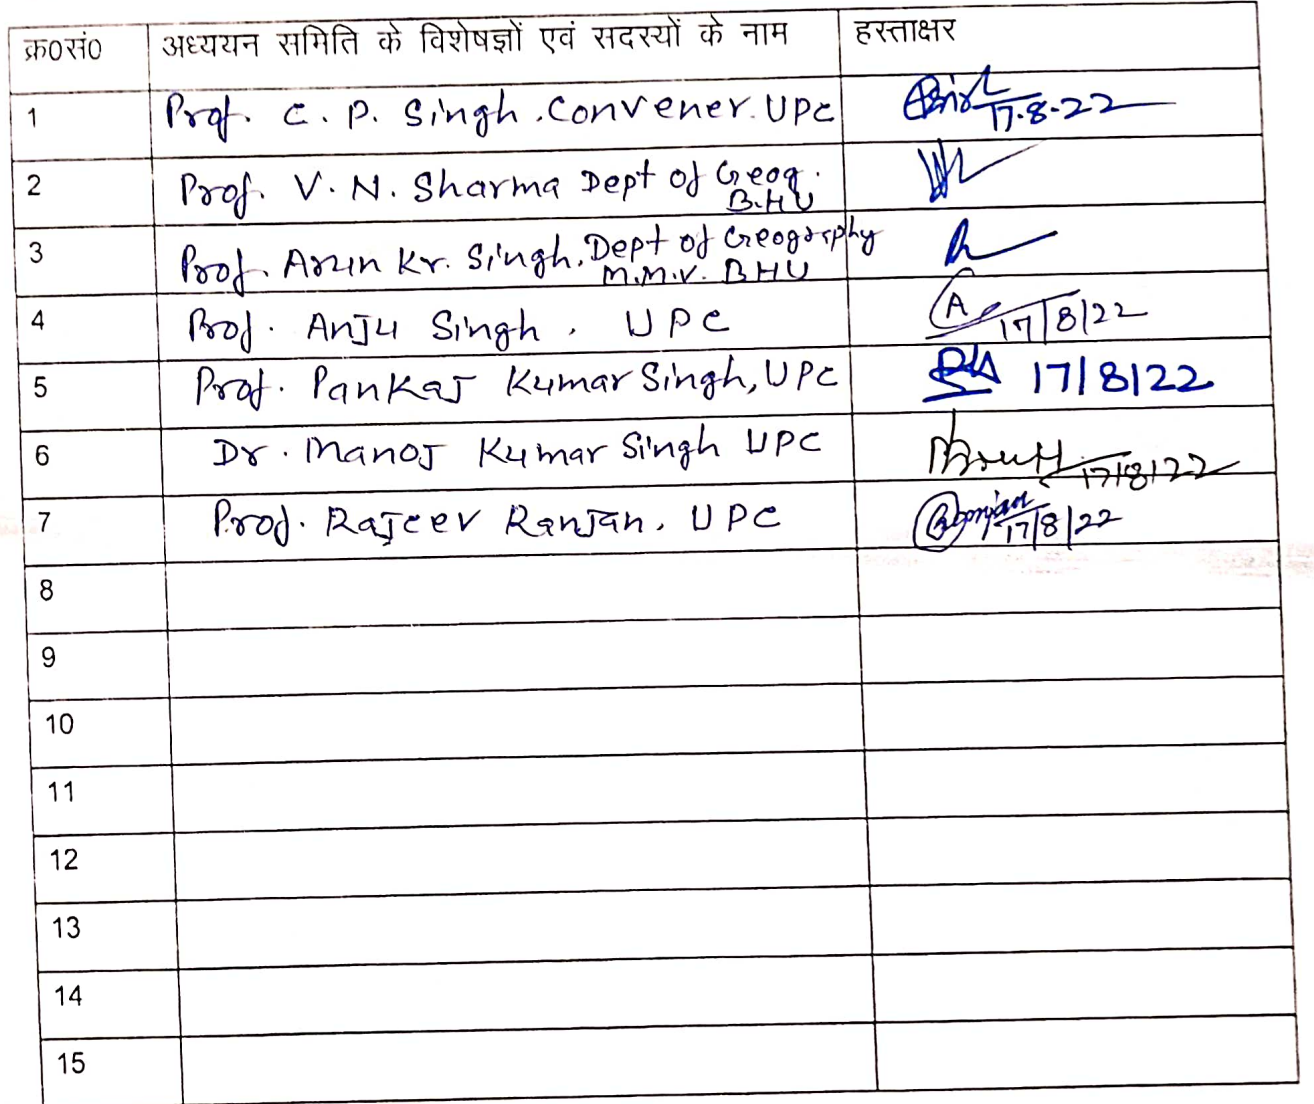 क्र०सं० अध्ययन समिति के विशेषज्ञों एवं सदस्यों के नाम हस्ताक्षर
1 Prof. C. P. Singh. Convener. UPC 17-8-22
2 Prof. V. N. Sharma Dept of Geog.
B.H.U
3 Prof. Arun Kr. Singh. Dept of Geography
M.M.V. BHU
4 Prof. Anju Singh, UPC A 17/8/22
5 Prof. Pankaj Kumar Singh, UPC 17/8/22
6 Dr. Manoj Kumar Singh UPC 17/8/22
7 Prof. Rajeev Ranjan, UPC Ranjan 17/8/22
8
9
10
11
12
13
14
15